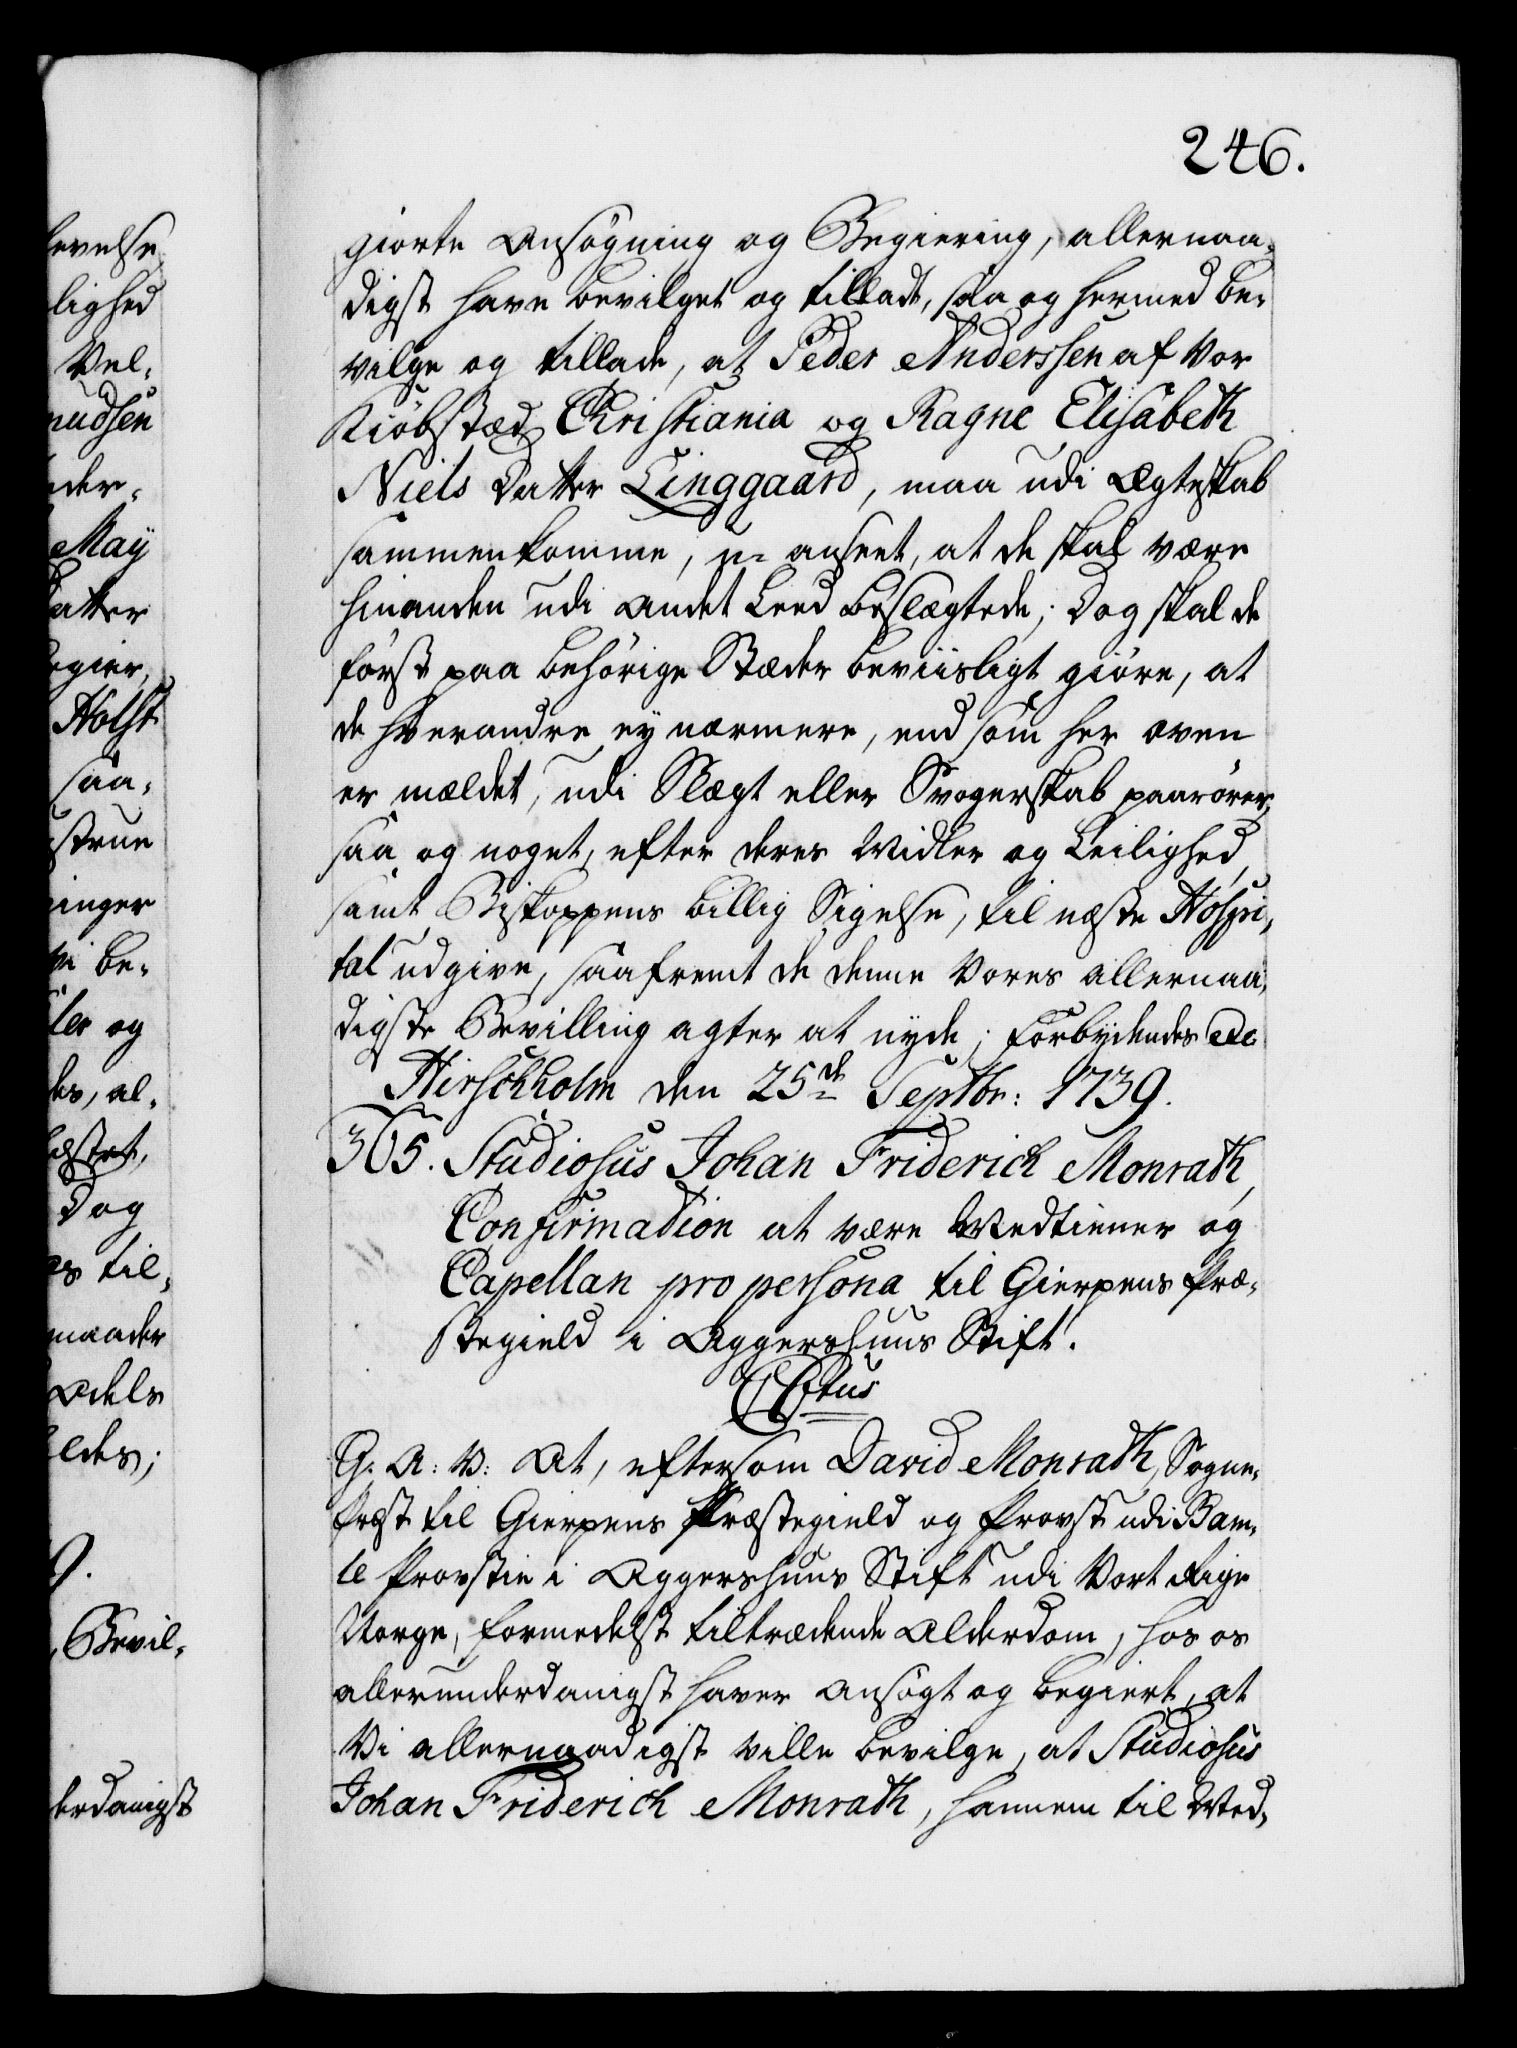 246.
giorte Ansøgning og Begiering, allernaa-
digst have bevilget og tilladt, saa og hermed be-
vilge og tillade, at Peder Anderssen af Vor
Kiøbstæd Christiania og Ragne Elisabeth
Niels Datter Linggaard, maa udi Ægteskab
sammenkomme, u-anseet, at de skal være
hinanden udi andet Leed beslægtede; Dog skal de
først paa behørige Stæder beviisligt giøre, at
de hverandre ey nærmere, end som her oven
er mældet, udi Slægt eller Svogerskab paarører,
saa og noget, efter deres Midler og Leilighed,
samt Biskoppens billig Sigelse, til næste Hospi-
tal udgive, saafremt de denne Vores allernaa-
digste Bevilling agter at nyde; Forbydendes etc
Hirschholm den 25de Septbr: 1739.
365. Studiosus Johan Friderich Monrath,
Confirmation at være Medtiener og
Capellan pro persona til Gierpens Præ-
stegield i Aggershuus Stift.
G. A: V: At, eftersom David Monrath, Sogne-
Præst til Gierpens Præstegield og Provst udi Bam-
le Provstie i Aggershuus Stift udi Vort Rige
Norge, formedelst tiltrædende Alderdom, hos os
allerunderdanigst haver ansøgt og begiert, at
Vi allernaadigst ville bevilge, at Studiosus
Johan Friderich Monrath, hannem til Med-